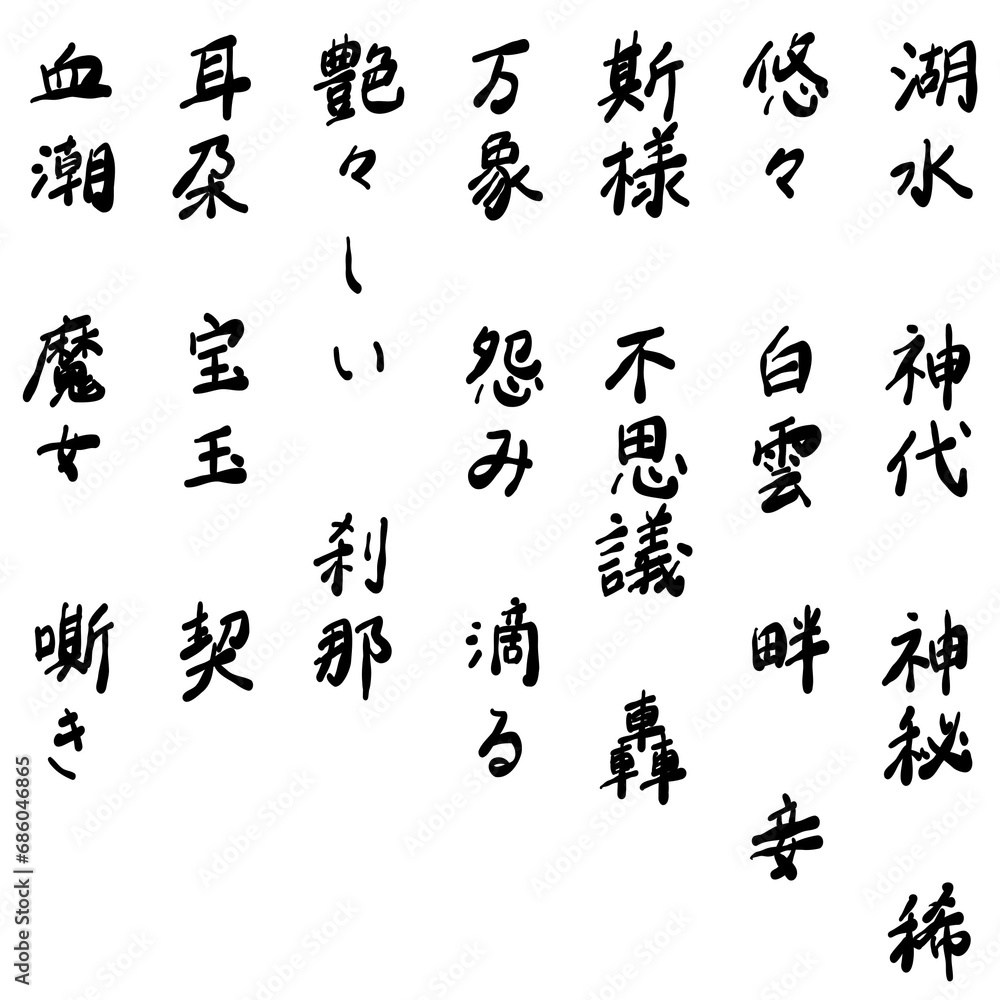 湖水
神代
神秘
稀
悠々
白雲
畔
妾
斯様
不思議
轟
万象
怨み
滴る
艶々しい
刹那
耳朶
宝玉
契
血潮
魔女
嘶き
Adobe Stock | #686046865